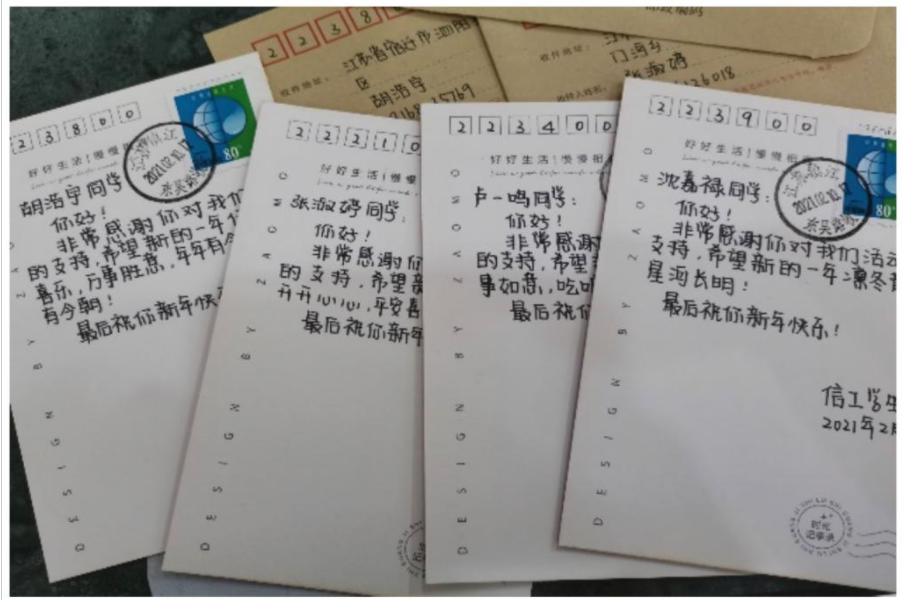 2238
收件地址：江苏省宿迁市泗阳
区
胡浩宇
15769
收件地址：
门海乡
张淑婷
26018
收件人姓名：
23800
好好生活！慢慢
80
江苏镇江
2021.02.10.17
胡浩宇同学
你好！
非常感谢你对我们
的支持，希望新的一年
喜乐，万事胜意，年年有
有今朝！
最后祝你新年快乐
DESIGN BY ZAO
22210
好好生活！慢慢
张淑婷同学：
你好！
非常感谢
的支持，希望
开开心心，平安喜
最后祝你新年
DESIGN BY ZAOMO
223400
好好生活！慢慢
卢一鸣同学：
你好！
非常感谢
的支持，希望
事如意，吃
最后祝
DESIGN BY ZAOMO
223900
好好生活！慢慢
80
2021.02.10.17
沈嘉禄同学：
你好！
非常感谢你对我们活动
的支持，希望新的一年凛冬
星河长明！
最后祝你新年快乐！
信工学生
2021年2月
DESIGN BY ZAOMO
时光
记事录